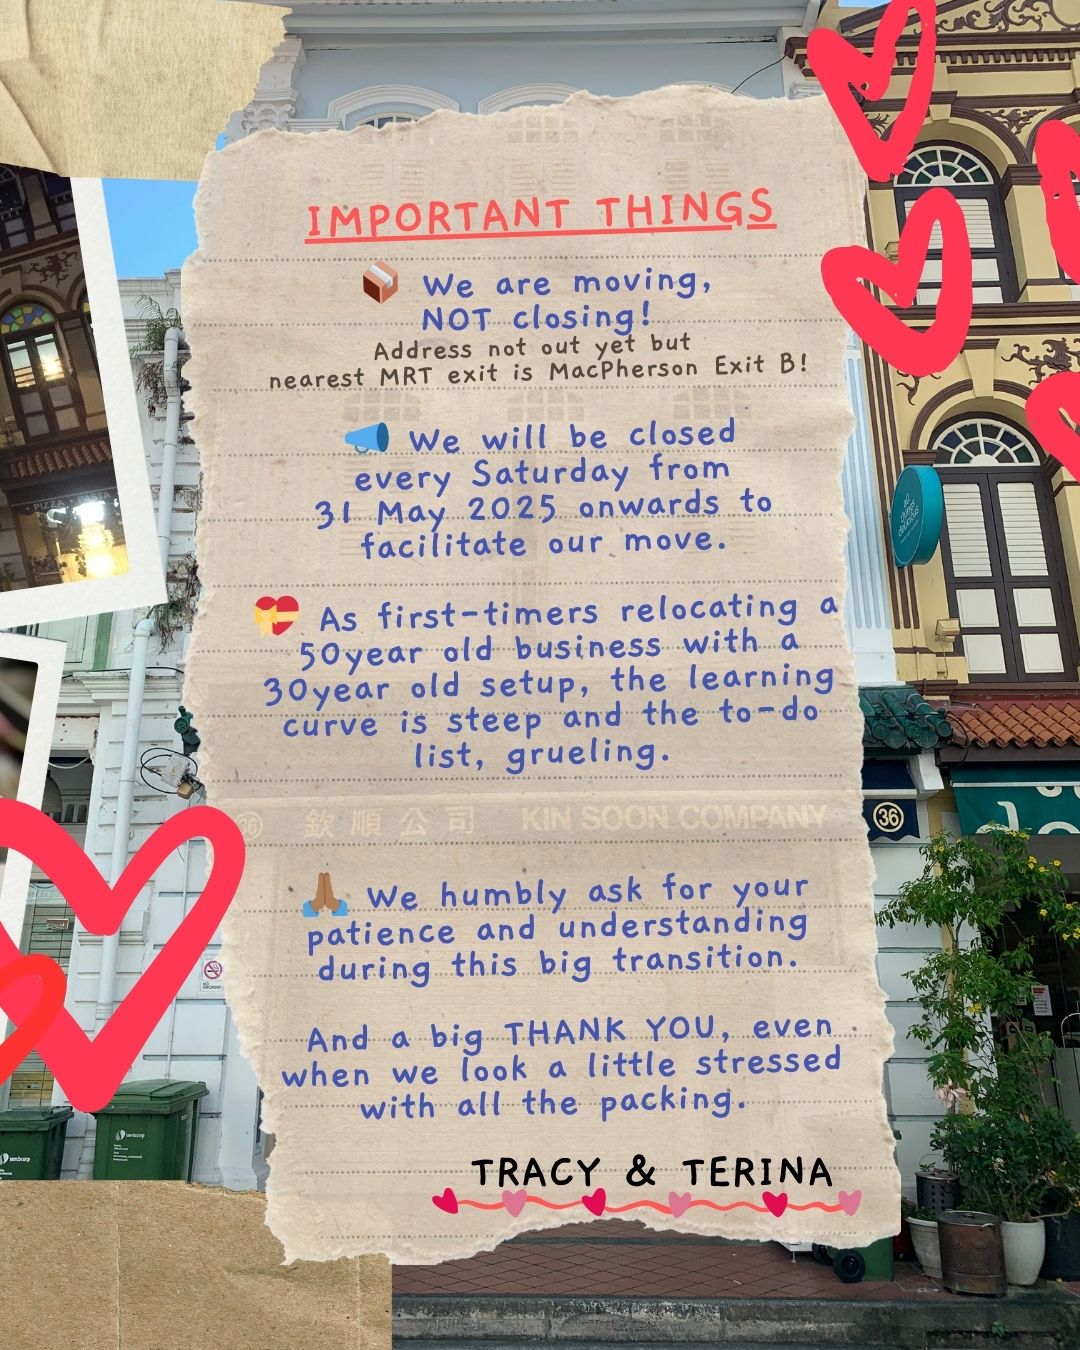 IMPORTANT THINGS
📦 We are moving,
NOT closing!
Address not out yet but
nearest MRT exit is MacPherson Exit B!
📣 We will be closed
every Saturday from
31 May 2025 onwards to
facilitate our move.
💝 As first-timers relocating a
50year old business with a
30year old setup, the learning
curve is steep and the to-do
list, grueling.
36 欽順公司 KIN SOON COMPANY
🙏🏾 We humbly ask for your
patience and understanding
during this big transition.
And a big THANK YOU, even
when we look a little stressed
with all the packing.
TRACY & TERINA
36
all
things
delicious
PIZZA
NO SMOKING
sembcorp
sembcorp